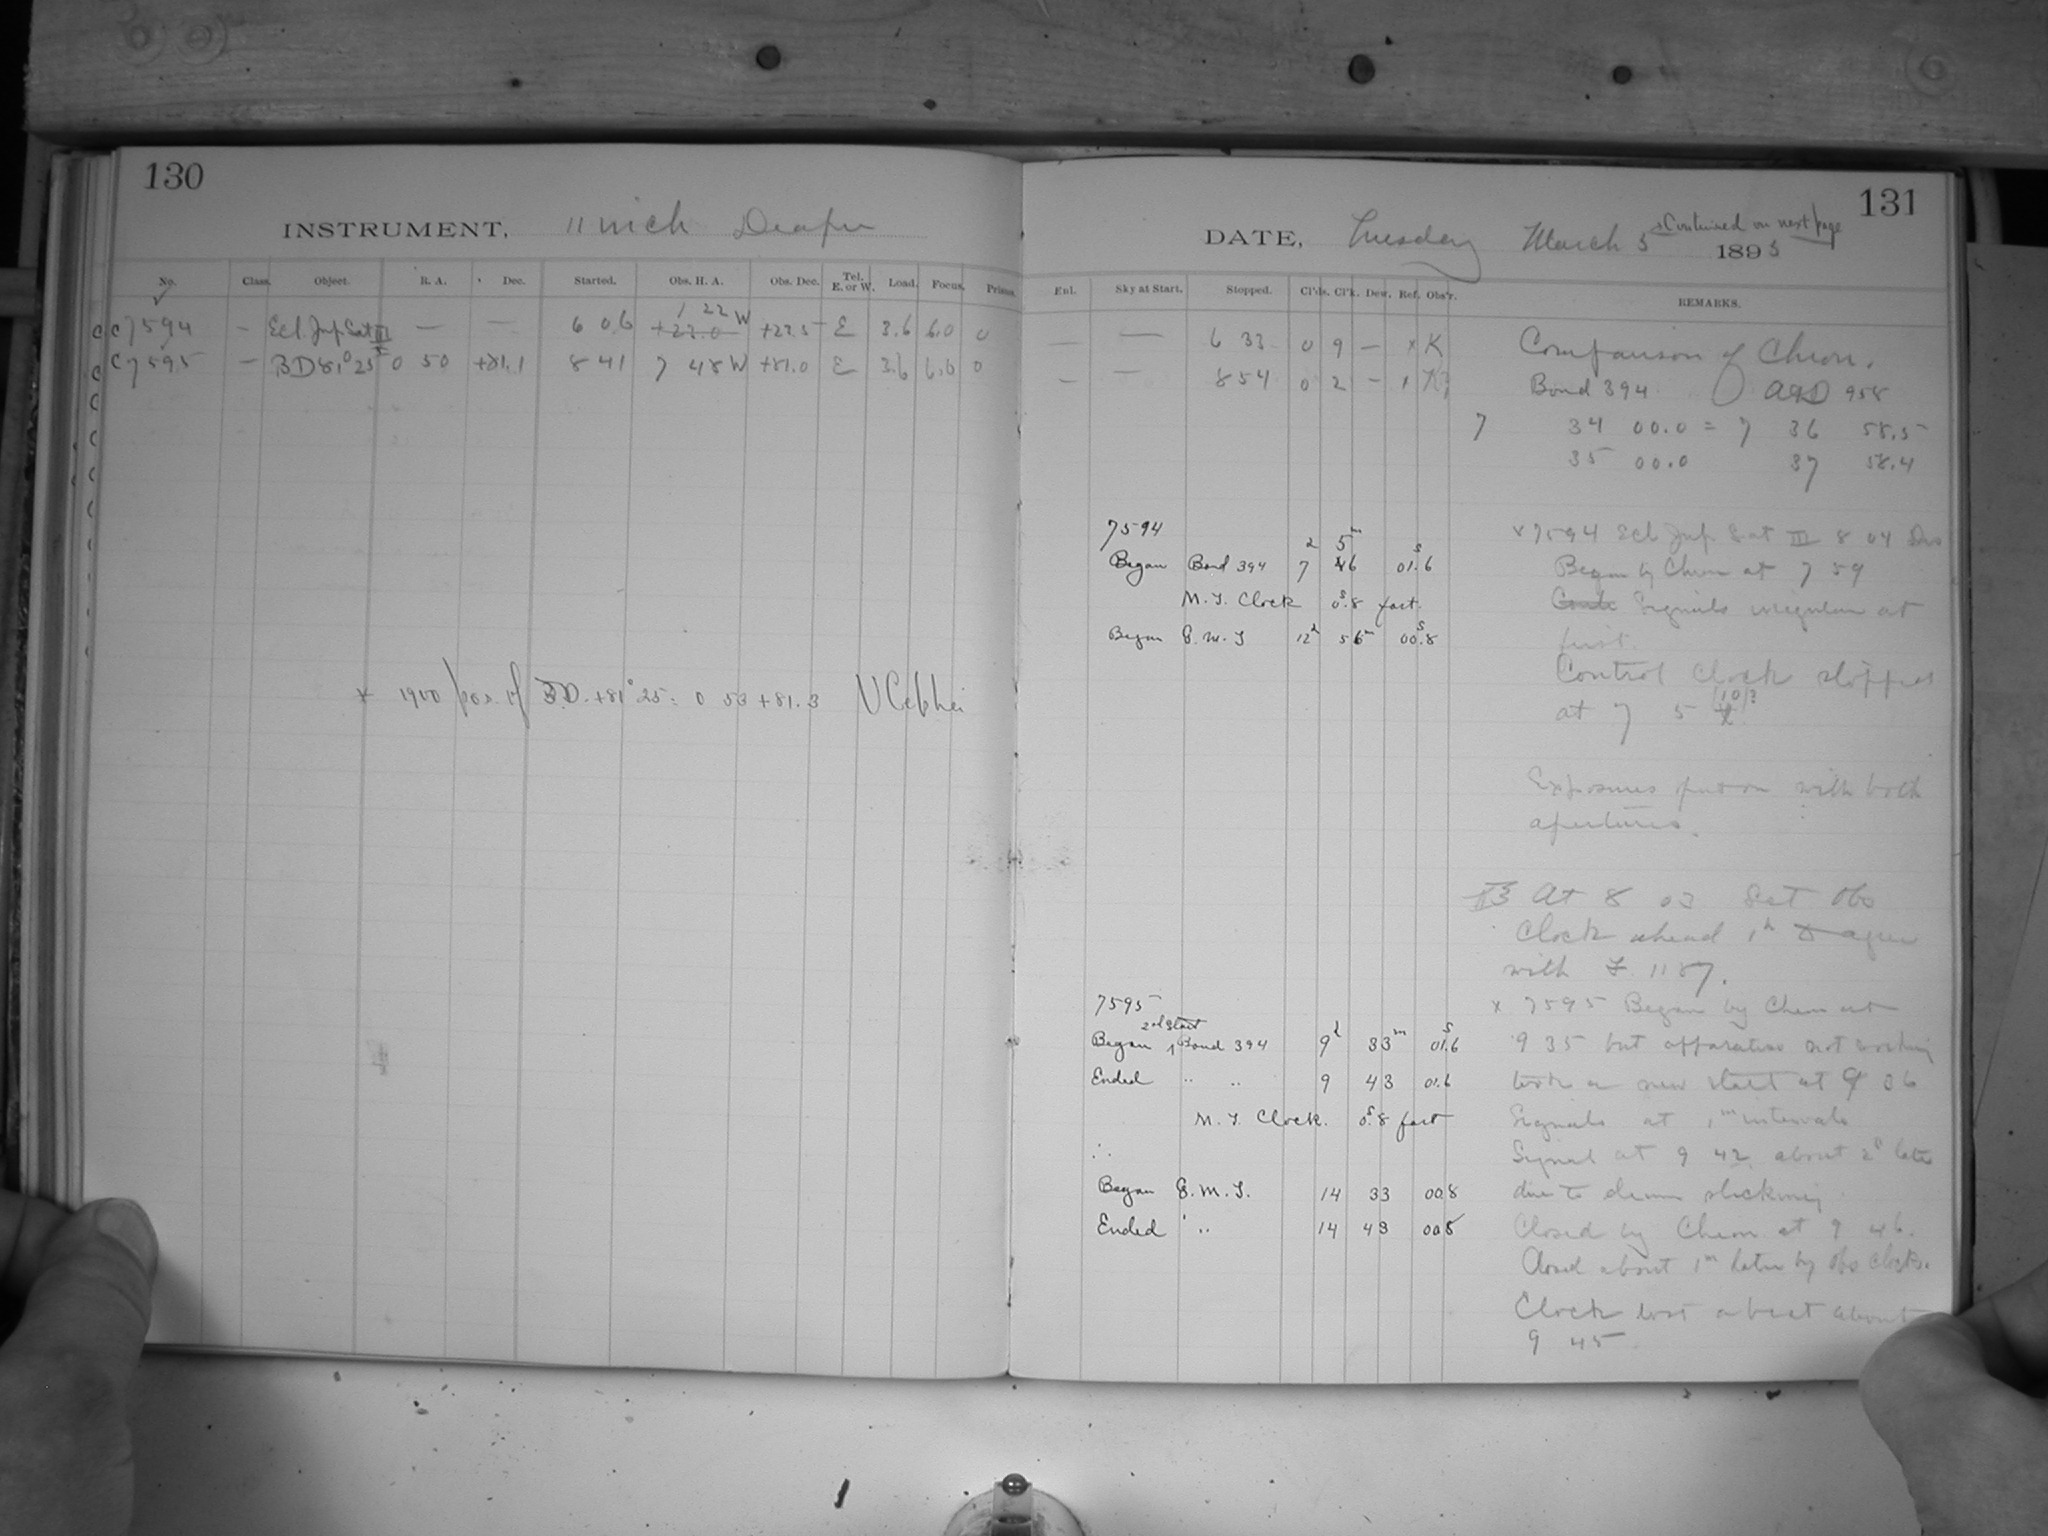 130
INSTRUMENT, 11 inch Draper
No. Class. Object. R. A. Dec. Started. Obs. H. A. Obs. Dec. Tel. E. or W. Load. Focus. Prisms.
1 22 W
C 7594 — Ecl. Jup. Sat III — — 6 06 +23.0 +23.5 E 3.6 6.0 0
C 7595 — BD 81° 25 0 50 +81.1 8 41 7 48 W +81.0 E 3.6 6.0 0
x 1900 pos. of B.D. +81° 25: 0 53 +81.3 U Cephei
131
Continued on next page
DATE, Tuesday March 5 1895
Enl. Sky at Start. Stopped. Cl'ds. Cl'k. Dew. Ref. Obs'r. REMARKS.
— — 6 33 0 9 — x K
— — 8 54 0 2 — x K
Comparison of Chron.
Bond 394 958
7 34 00.0 = 7 36 58.5
35 00.0 37 58.4
7594
Began Bond 394 7 56 01.6
M. T. Clock 0.8 fast.
Began G. M. T 12h 56m 00.8
x 7594 Ecl Jup Sat III 8 04 Dis
Began by Chron at 7 59
Signals irregular at
first.
Control Clock stopped
at 7 5
Exposures put on with both
apertures.
At 8 03 Set Obs
Clock ahead 1h to agree
with F. 1187.
7595
2nd Start
Began Bond 394 9h 33m 01.6
Ended " " 9 43 01.6
M. T. Clock. 0.8 fast
∴
Began G. M. T. 14 33 00.8
Ended " 14 43 00.8
x 7595 Began by Chron at
9 35 but apparatus not working
took a new start at 9 36
Signals at 1m intervals
Signal at 9 42 about 2s late
due to drum sticking
Closed by Chron at 9 46.
Closed about 1m later by Obs Clock.
Clock lost a beat about
9 45